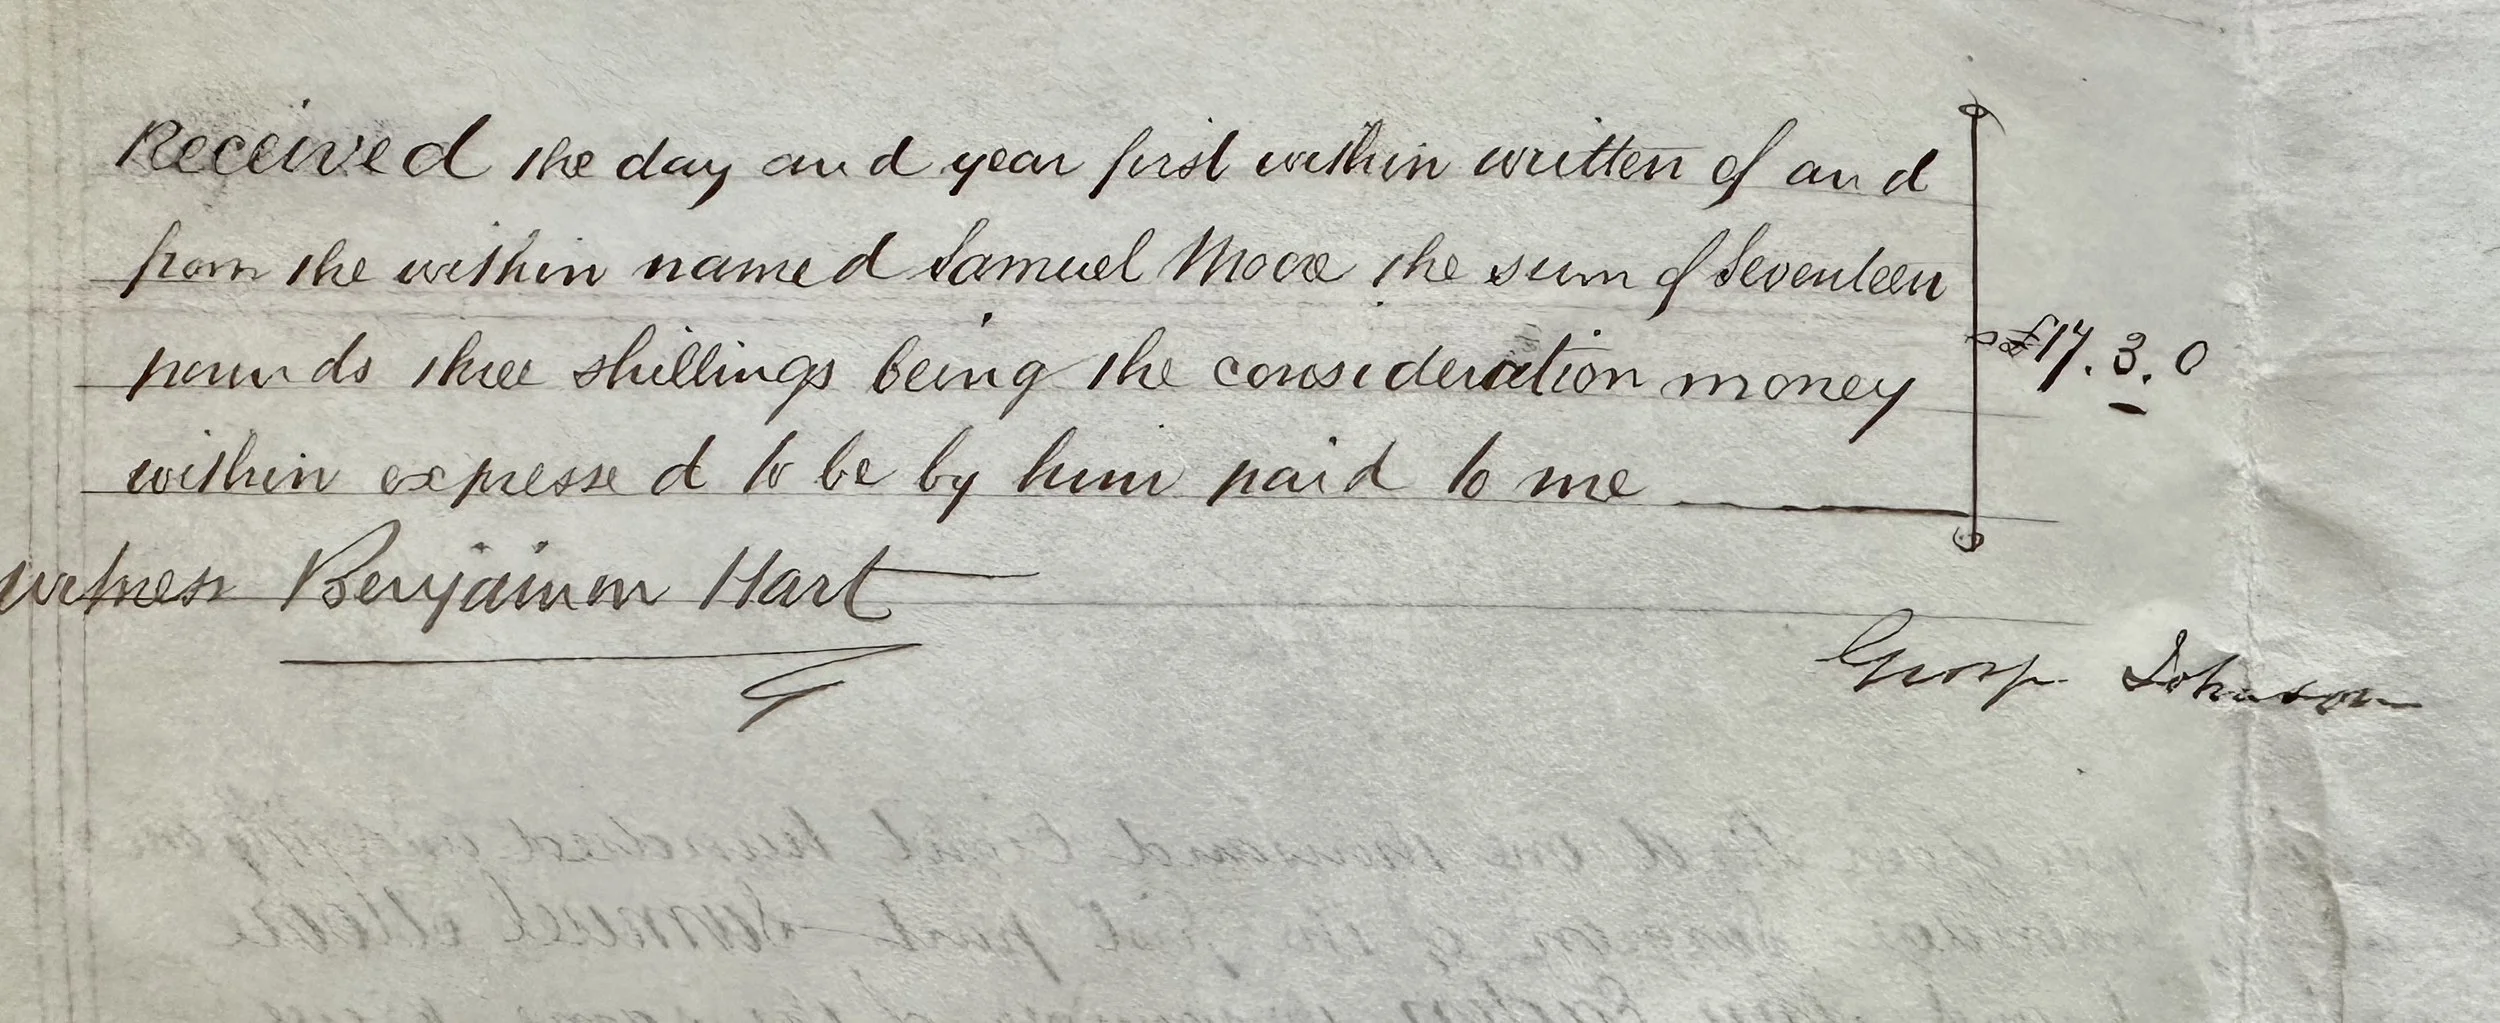 Received the day and year first within written of and
from the within named Samuel Moore the sum of Seventeen
pounds three shillings being the consideration money
within expressed to be by him paid to me
£17.3.0
Witness Benjamin Hart
George Johnson